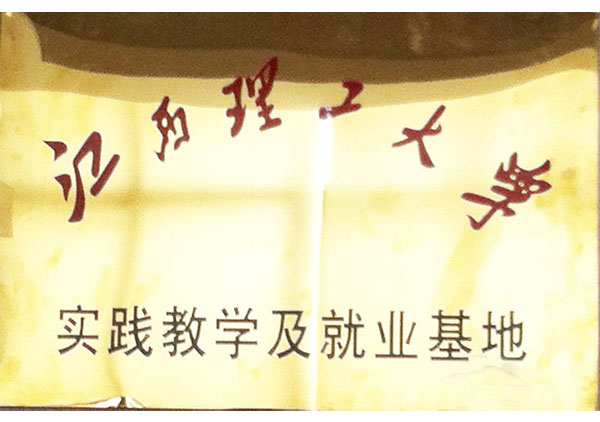 江西理工大学
实践教学及就业基地